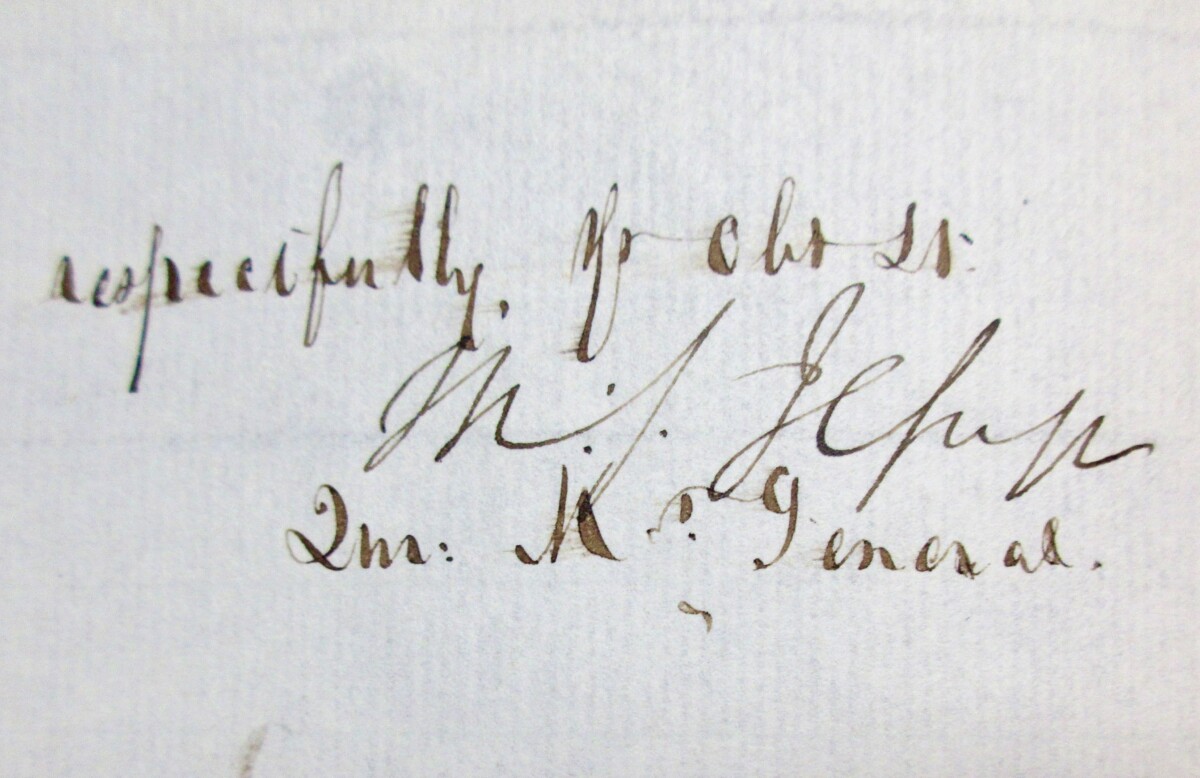 respectfully, Yr Obt St.
Th. S. Jesup
Qur. Mr. General.